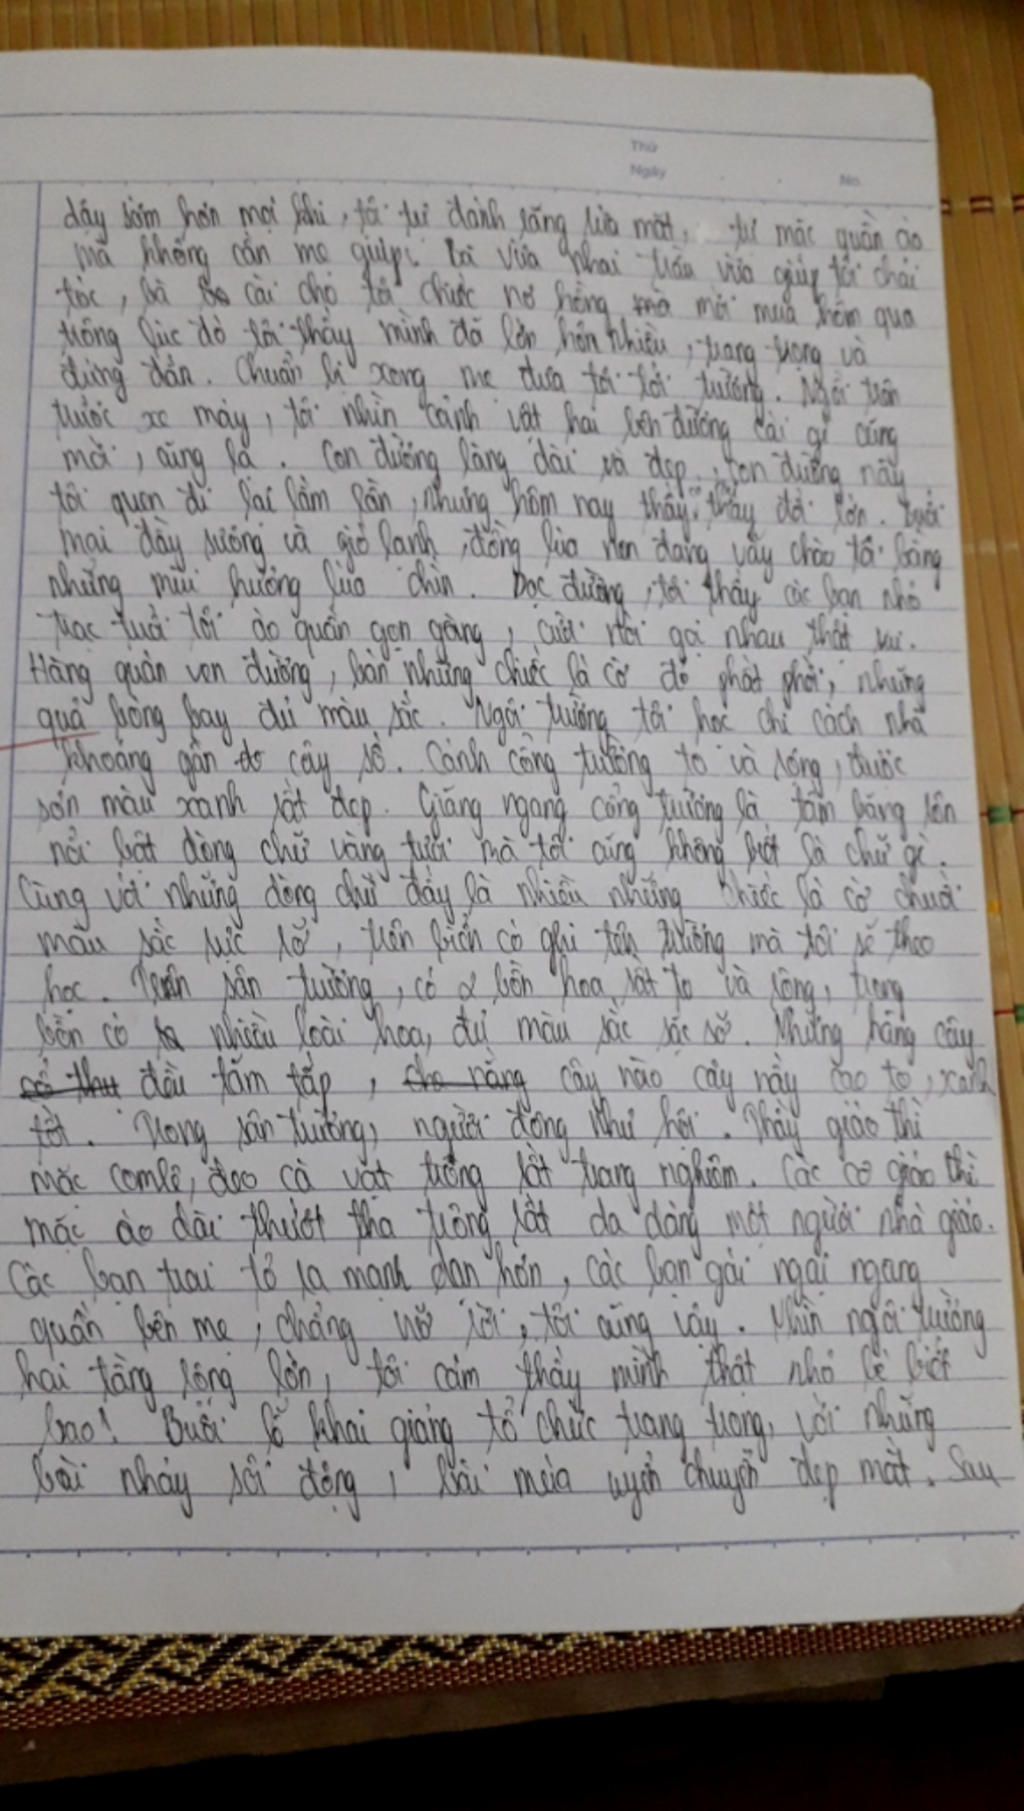 Thứ
Ngày
No.
dậy sớm hơn mọi khi, tôi tự đánh răng rửa mặt, tự mặc quần áo
mà không cần mẹ giúp. Bà vừa nhai trầu vừa giúp tôi chải
tóc, bà cài cho tôi chiếc nơ hồng mà mới mua hôm qua
trông lúc đó tôi thấy mình đã lớn hơn nhiều, trang trọng và
đứng đắn. Chuẩn bị xong mẹ đưa tôi tới trường. Ngồi trên
trước xe máy, tôi nhìn cảnh vật hai bên đường cái gì cũng
mới, cũng lạ. Con đường làng dài và đẹp, con đường này
tôi quen đi lại lắm lần, nhưng hôm nay thấy thay đổi lớn. Buổi
mai đầy sương và gió lạnh, đồng lúa non đang vẫy chào tôi bằng
những mùi hương lúa chín. Dọc đường, tôi thấy các bạn nhỏ
trạc tuổi tôi áo quần gọn gàng, cười nói gọi nhau thật vui.
Hàng quán ven đường, bán những chiếc lá cờ đỏ phất phới, những
quả bóng bay đủ màu sắc. Ngôi trường tôi học chỉ cách nhà
khoảng gần cây số. Cánh cổng trường to và rộng, được
sơn màu xanh rất đẹp. Giăng ngang cổng trường là tấm băng rôn
nổi bật dòng chữ vàng tươi mà tôi cũng không biết là chữ gì.
Cùng với những dòng chữ đấy là nhiều những chiếc lá cờ chuối
màu sắc rực rỡ, trên biển có ghi tên trường mà tôi sẽ theo
học. Trên sân trường, có 2 bồn hoa rất to và rộng, trong
bồn có nhiều loài hoa, đủ màu sắc sặc sỡ. Những hàng cây
đều tăm tắp, cây nào cây nấy cao to, xanh
tốt. Trong sân trường, người đông như hội. Thầy giáo thì
mặc comlê, đeo cà vạt trông rất trang nghiêm. Các cô giáo thì
mặc áo dài thướt tha trông rất da dáng một người nhà giáo.
Các bạn trai tỏ ra mạnh dạn hơn, các bạn gái ngại ngang
quấn bên mẹ, chẳng nỡ rời, tôi cũng vậy. Nhìn ngôi trường
hai tầng rộng lớn, tôi cảm thấy mình thật nhỏ bé biết
bao! Buổi lễ khai giảng tổ chức trang trọng, với những
bài nhảy sôi động, bài múa uyển chuyển đẹp mắt. Sau